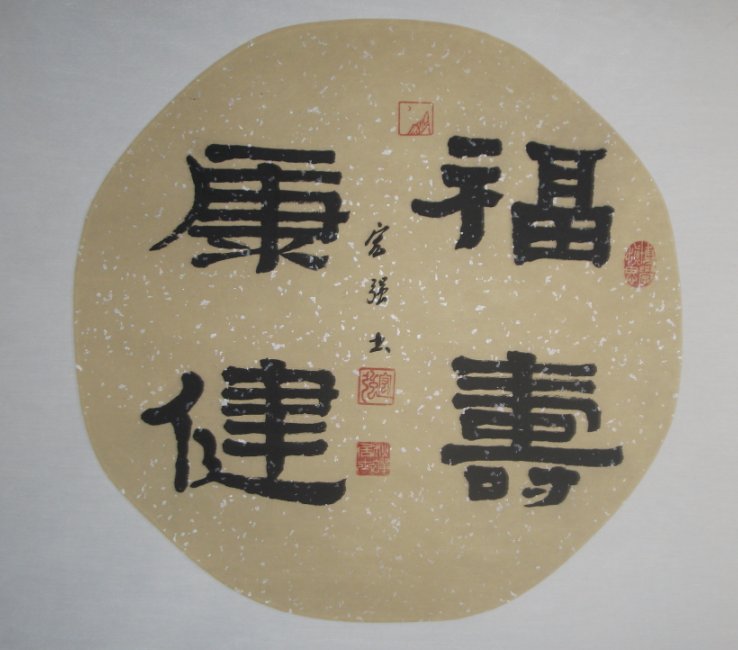 福壽
康健
宏强书